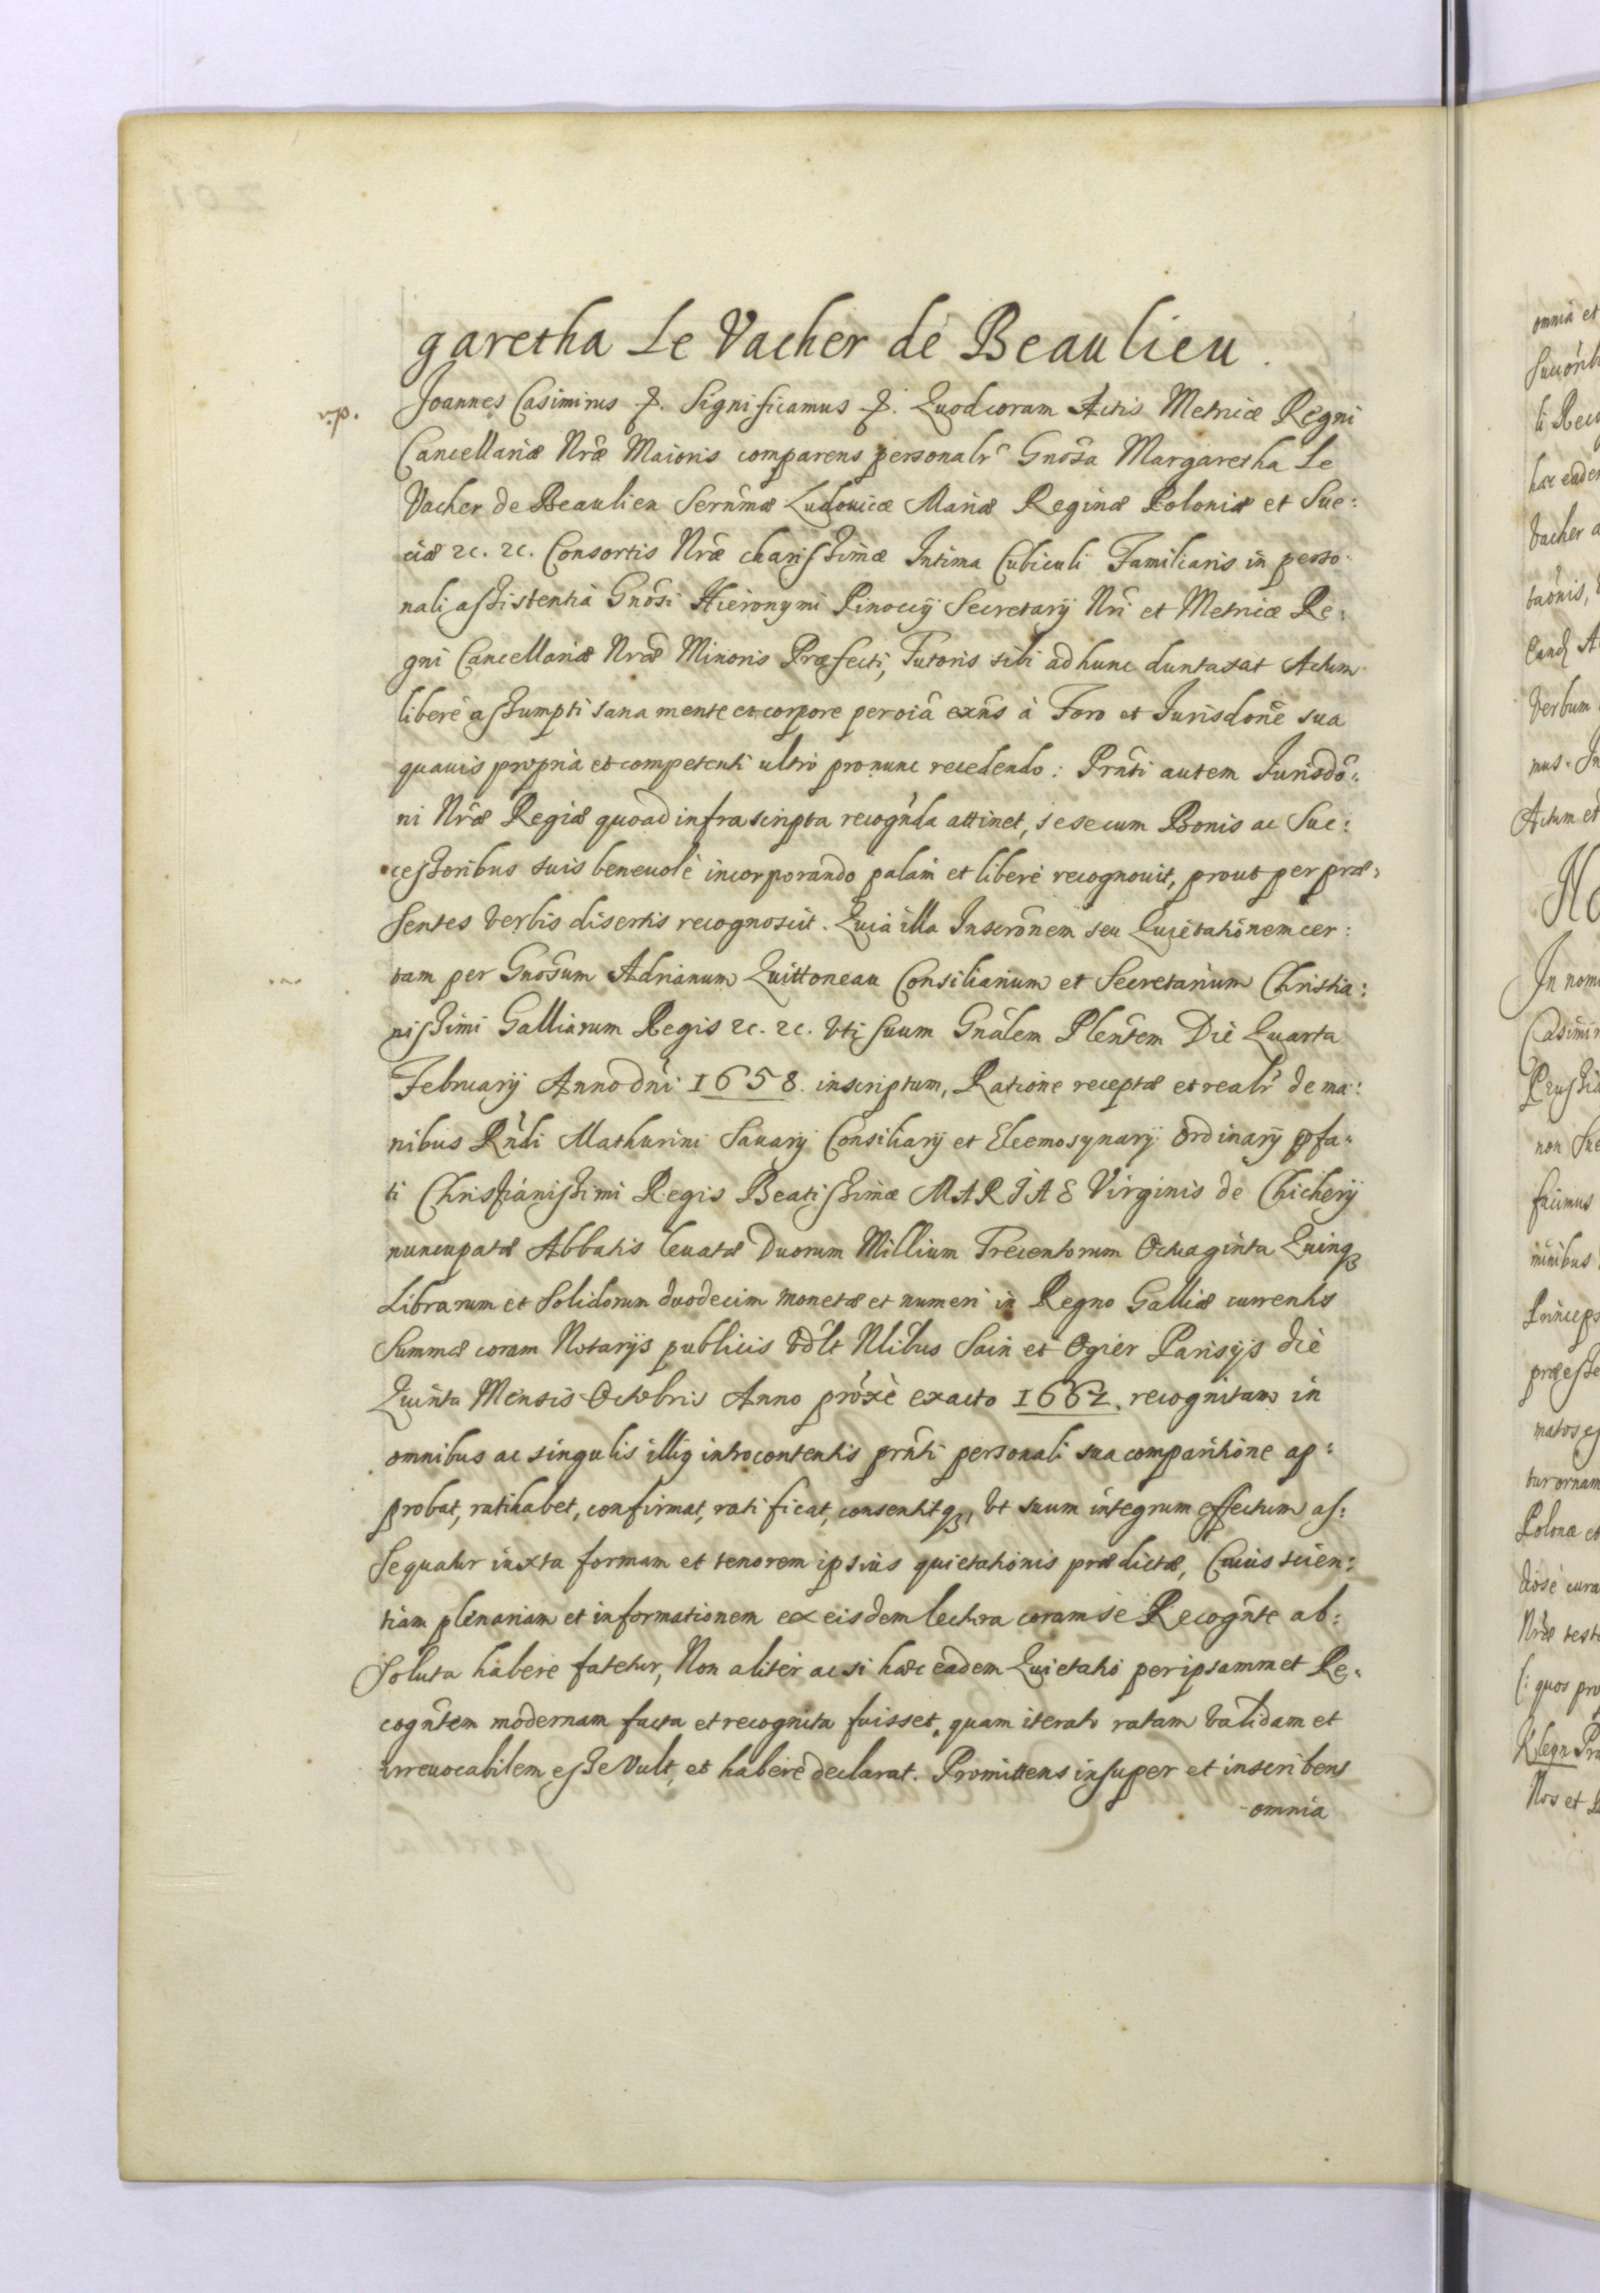 garetha Le Vacher de Beaulieu.
v.p.
Joannes Casimirus &. Significamus &. Quod coram Actis Metricæ Regni
Cancellariæ Nræ Maioris comparens personalr Gnosa Margaretha Le
Vacher de Beaulieu Sernmæ Ludouicæ Mariæ Reginæ Poloniæ et Sue:
ciæ &c. &c. Consortis Nræ charissimæ Intima Cubiculi Familiaris in perso:
nali assistentia Gnosi Hieronymi Pinocij Secretarij Nri et Metricæ Re:
gni Cancellariæ Nræ Minoris Præfecti, Tutoris sibi ad hunc duntaxat Actum
liberè assumpti sana mente et corpore per oia exns à Foro et Jurisdone sua
quauis propria et competenti ultro pronunc recedendo: Prnti autem Jurisdo:
ni Nræ Regiæ quoad infrascripta recognda attinet, sese cum Bonis ac Suc:
cessoribus suis beneuolè incorporando palam et liberè recognouit, prout per præ:
sentes verbis disertis recognoscit. Quia illa Inscronem seu Quietationem cer:
tam per Gnosum Adrianum Quittoneau Consiliarium et Secretarium Christia:
nissimi Galliarum Regis &c. &c. vti suum Gnalem Plentem Die Quarta
February Anno dni 1658. inscriptum, Ratione receptæ et realr de ma:
nibus Rndi Mathurini Sauarij Consiliarij et Eleemosynarij Ordinarij pfa:
ti Christianissimi Regis Beatissimæ MARIAE Virginis de Chicherij
nuncupatæ Abbatis leuatæ Duorum Millium Trecentorum Octuaginta Quinq3
Librarum et Solidorum duodecim monetæ et numeri in Regno Galliæ currentis
Summæ coram Notarijs publicis vdlt Nlibus Sain et Ogier Parisijs die
Quinta Mensis Octobris Anno proxè exacto 1662. recognitam in
omnibus ac singulis illis introcontentis prnti personali sua comparitione ap:
probat, ratihabet, confirmat, ratificat, consentitq3, vt suum integrum effectum as:
sequatur iuxta formam et tenorem ipsius quietationis prædictæ, Cuius scien:
tiam plenariam et informationem ex eisdem lectura coram se Recognte ab:
soluta habere fatetur, Non aliter ac si hæc eadem Quietatio per ipsammet Re:
cogntem modernam facta et recognita fuisset, quam iterato ratam validam et
irreuocabilem esse vult, et habere declarat. Promittens insuper et inscribens
omnia